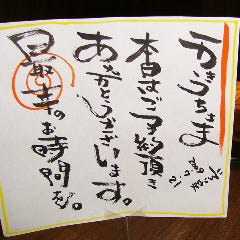 かきうちさま
本日はご予約頂き
ありがとうございます。
最幸のお時間を。